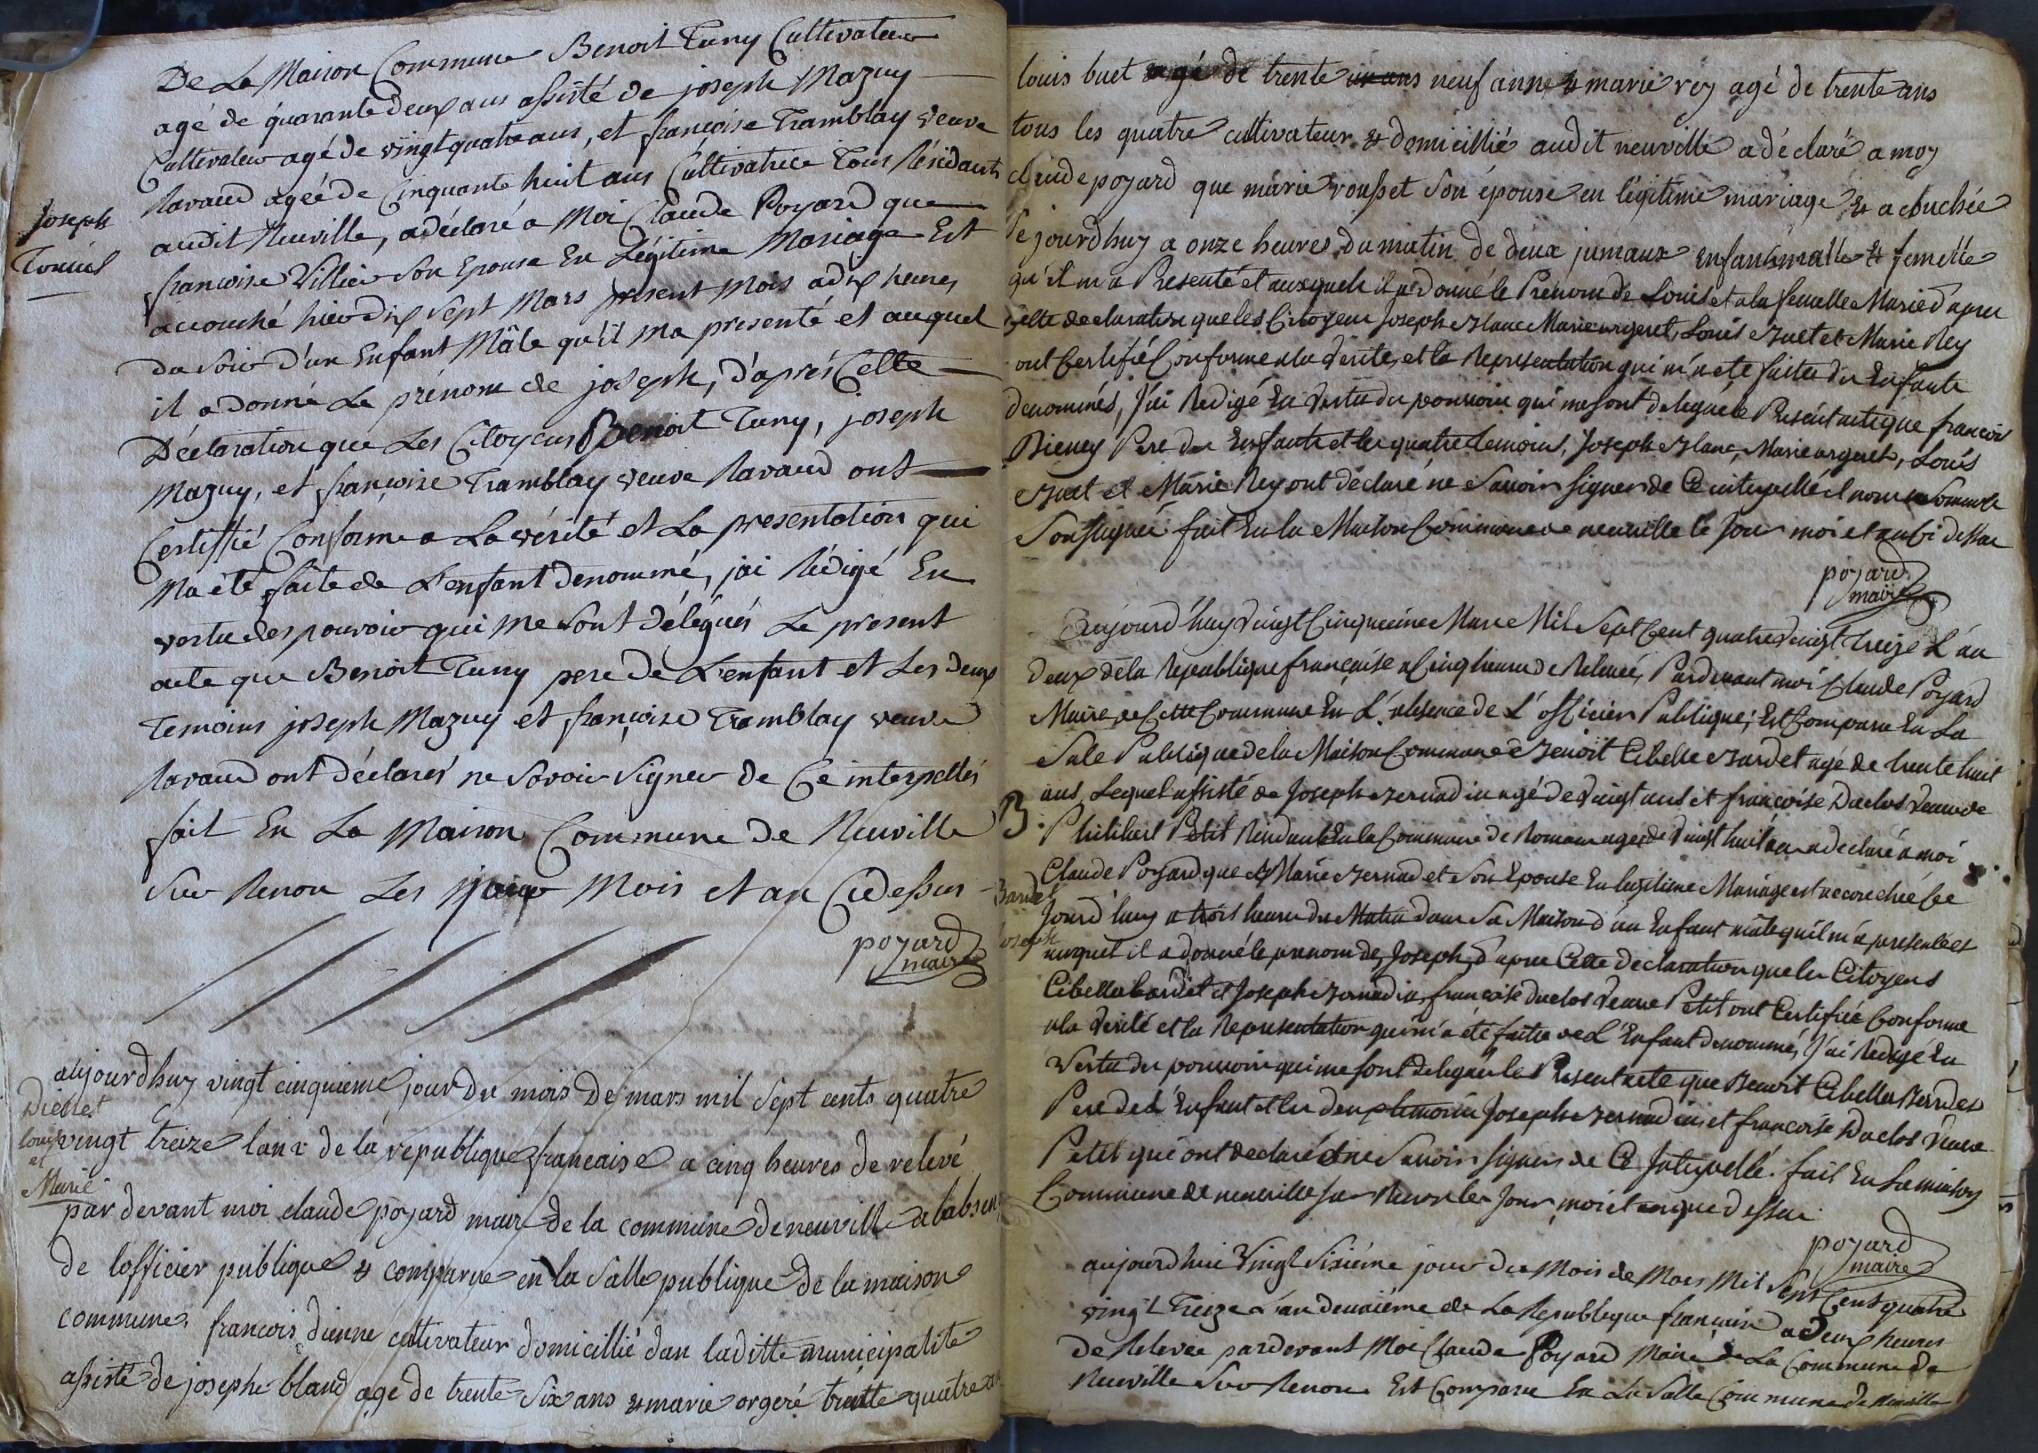 De La Maison Commune Benoit Tuny Cultivateur
agé de quarante deux ans assisté de joseph Mazuy
Cultivateur agé de vingt quatre ans, et françoise Tramblay veuve
Ravaud agée de Cinquante huit ans Cultivatrice Tous Résidants
audit Neuville, a déclaré a Moi Claude Poyard que
françoise Villier son Epouse En Légitime Mariage Est
accouché hier dix sept Mars present mois a dix heures
du soir d'un Enfant Mâle qu'il ma presenté et auquel
il a donné Le prénom de joseph, d'après Cette
Déclaration que Les Citoyens Benoit Tuny, joseph
Mazuy, et françoise Tramblay veuve Ravaud ont
Certiffié Conforme a La vérité et La presentation qui
Ma été faite de L'enfant denommé, jai Rédigé En
vertu des pouvoir qui me sont délégués Le present
acte que Benoit Tuny pere de L'enfant et Les deux
Temoins joseph Mazuy et françoise Tramblay veuve
Ravaud ont déclarés ne Savoir Signer de Ce interpellés
fait En La Maison Commune de Neuville
Sur Renon Les jour Mois et an Cidessus
poyard
maire
Joseph
aujourdhuy vingt cinquieme jour du mois De mars mil sept cents quatre
louis
et
Marie
vingt treize lan 2 de la republique francaise a cinq heures de relevé
par devant moi claude poyard maire de la commune de neuville a labsen
de lofficier publique & comparue en la Salle publique de la maison
commune francois dienne cultivateur domicillié dan laditte municipalité
assisté de josephe bland agé de trente Six ans & marie orgeré trente quatre ans
louis buet agé de trente neuf anne & marie rey agé de trente ans
tous les quatre cultivateur & domicillié audit neuville a déclaré a moy
claude poyard que marie rousset son épouse en légitime mariage & acouchée
Ce jourdhuy a onze heures du matin de deux jumaux enfans malle & femelle
qu'il m'a Presenté et auxquels il a donné le Prenom de Louis et a la femelle Marie d'apres
cette declaration que les Citoyens Joseph Blanc Marie orgeret, Louis Buet et Marie Rey
ont Certifié Conforme a la Verite, et la Representation qui m'a ete faite des Enfants
denommés, J'ai Redigé En Vertu du pouvoir qui me sont delegué le Present acte que francois
Pere des Enfants et les quatre temoins, Joseph Blanc, Marie orgeret, Louis
Buet et Marie Rey ont déclaré ne Savoir Signer de Ce interpellé et nous
Soussigné fait En la Maison Commune de neuville le jour moi et an Ci dessus
poyard
maire
Aujourd'huy Vingt Cinquieme Mars Mil Sept Cent quatre vingt Treize L'an
deux de la Republique française a Cinq heures de Relevée, Pardevant moi Claude Poyard
Maire de Cette Commune En L'absence de L'officier Publique, Est Comparu En La
Sale Publique de la Maison Commune Benoit Cibelle Bardet agé de trente huit
ans, Lequel assisté de Joseph Bernadin agé de Vingt ans et françoise Duclos Veuve de
Philibert Petit Residant En la Commune de Romans agée de Vingt huit ans a declaré a moi
Claude Poyard que Marie Bernad et Son Epouse En legitime Mariage est accouchée Ce
Jourd'huy a trois heures du Matin dans Sa Maison d'un Enfant mâle qu'il m'a presenté et
auquel il a donné le prenom de Joseph, d'apres Cette declaration que les Citoyens
Cibelle bardet et Joseph Bernadin, francoise duclos Veuve Petit ont Certifiée Conforme
a la Verité et la Representation qui m'a été faitte de L'Enfant denommé, J'ai Redigé En
Vertu du pouvoir qui me sont delegué le Present acte que Benoit Cibelle Bardet
Pere de L'Enfant et les deux temoins Joseph Bernadin et francoise Duclos Veuve
Petit qui ont declaré ne Savoir Signer de Ce Interpelle. fait En La maison
Commune de neuville Sur Renon les Jour, moi et an que dessus
B.
Bardet
Joseph
poyard
maire
aujourdhui Vingt Sixième jour du Mois de Mars Mil Sept Cent quatre
vingt Treize L'an deuxième de La Republique française a deux heures
de Relevée pardevant Moi Claude Poyard Maire de La Commune de
Neuville Sur Renon Est Comparu En La Salle Commune de Neuville